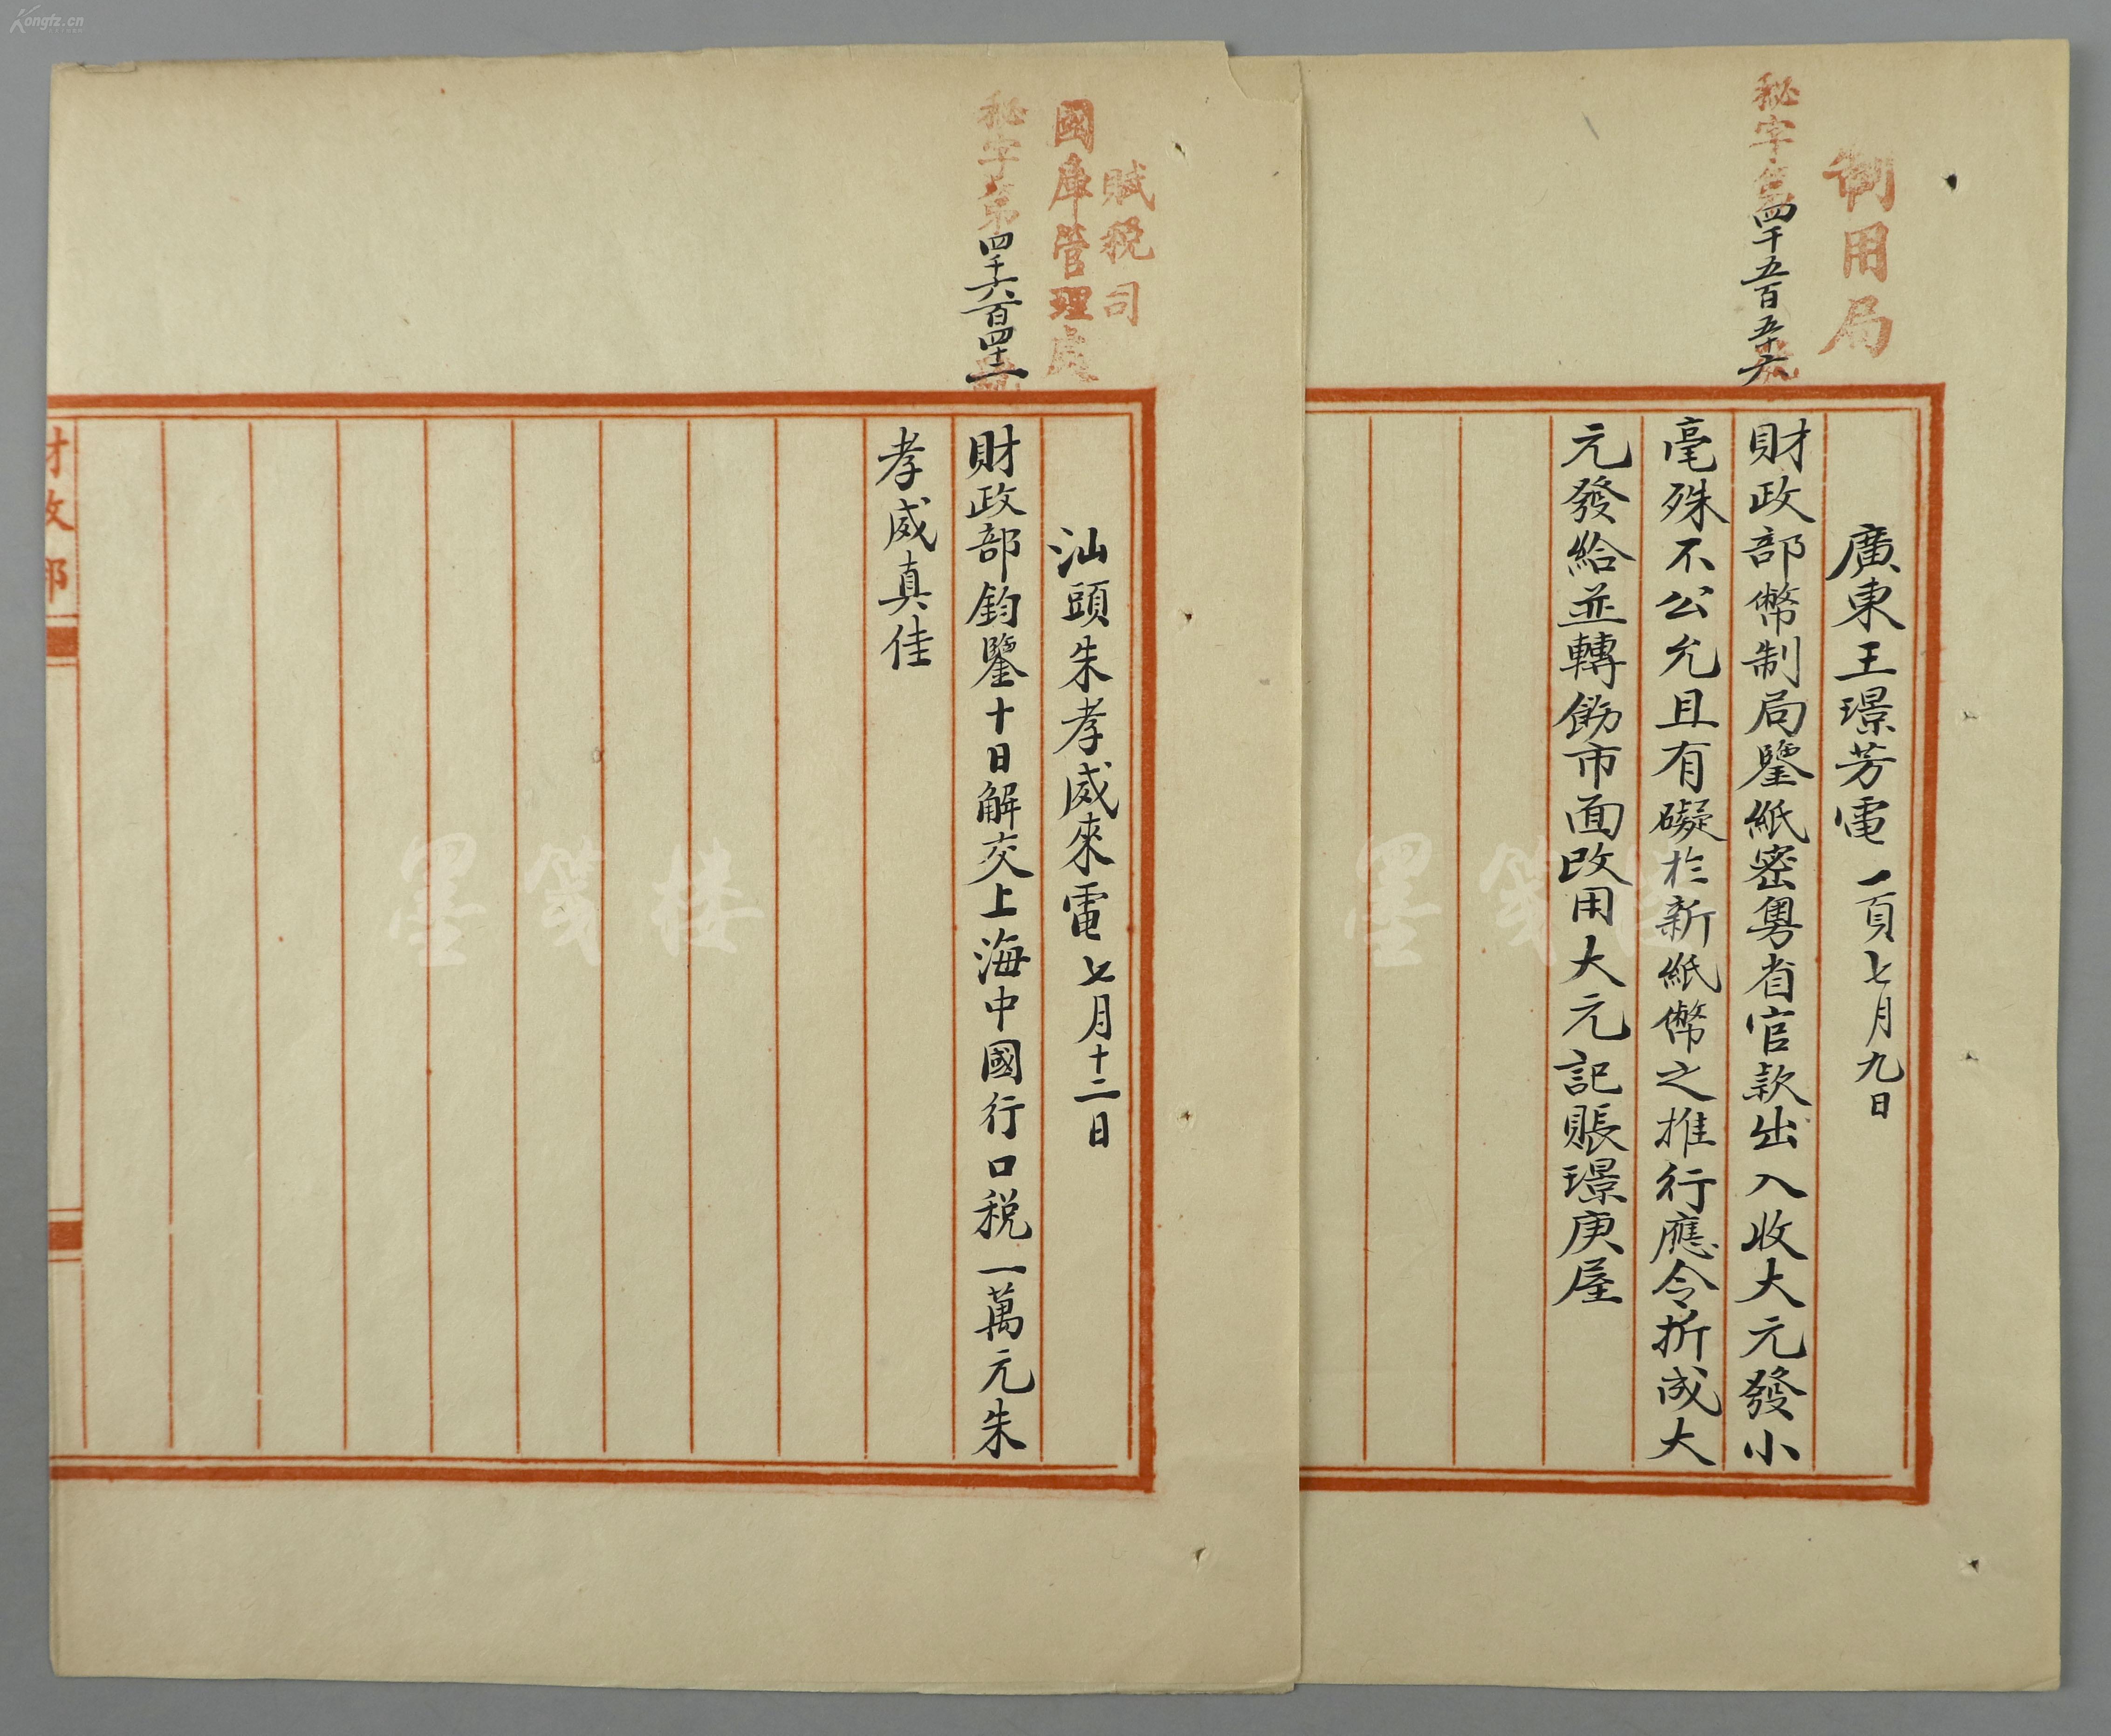 制用局
秘字第四千五百五十六號
廣東王璟芳電 一頁七月九日
財政部幣制局鑒紙密粵省官款出入收大元發小
毫殊不公允且有礙於新紙幣之推行應令折成大
元發給並轉飭市面改用大元記賬璟庚屋
賦稅司
國庫管理處
秘字第四千六百四十二號
汕頭朱孝威來電 七月十二日
財政部鈞鑒十日解交上海中國行口税一萬元朱
孝威真佳
財政部
墨笺楼
墨笺楼
Kongfz.cn